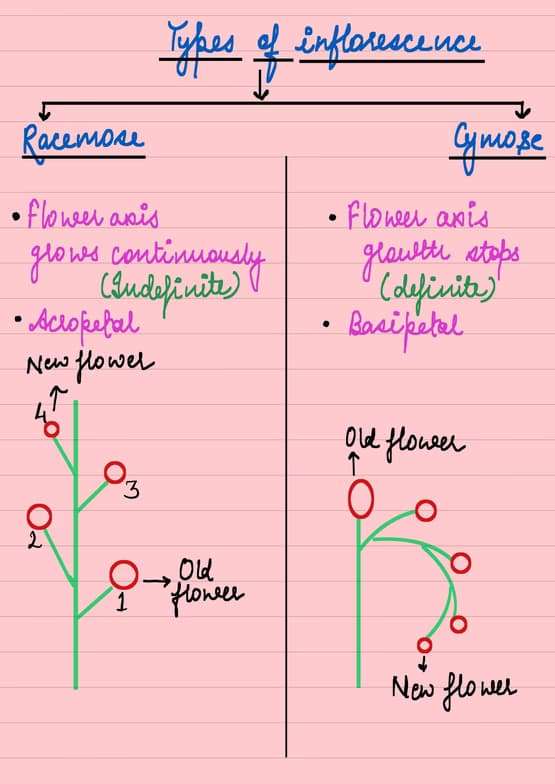 Types of inflorescence
Racemose
Cymose
• Flower axis
grows continuously
(Indefinite)
• Acropetal
New flower
4
3
2
1
Old
flower
• Flower axis
growth stops
(definite)
• Basipetal
Old flower
New flower